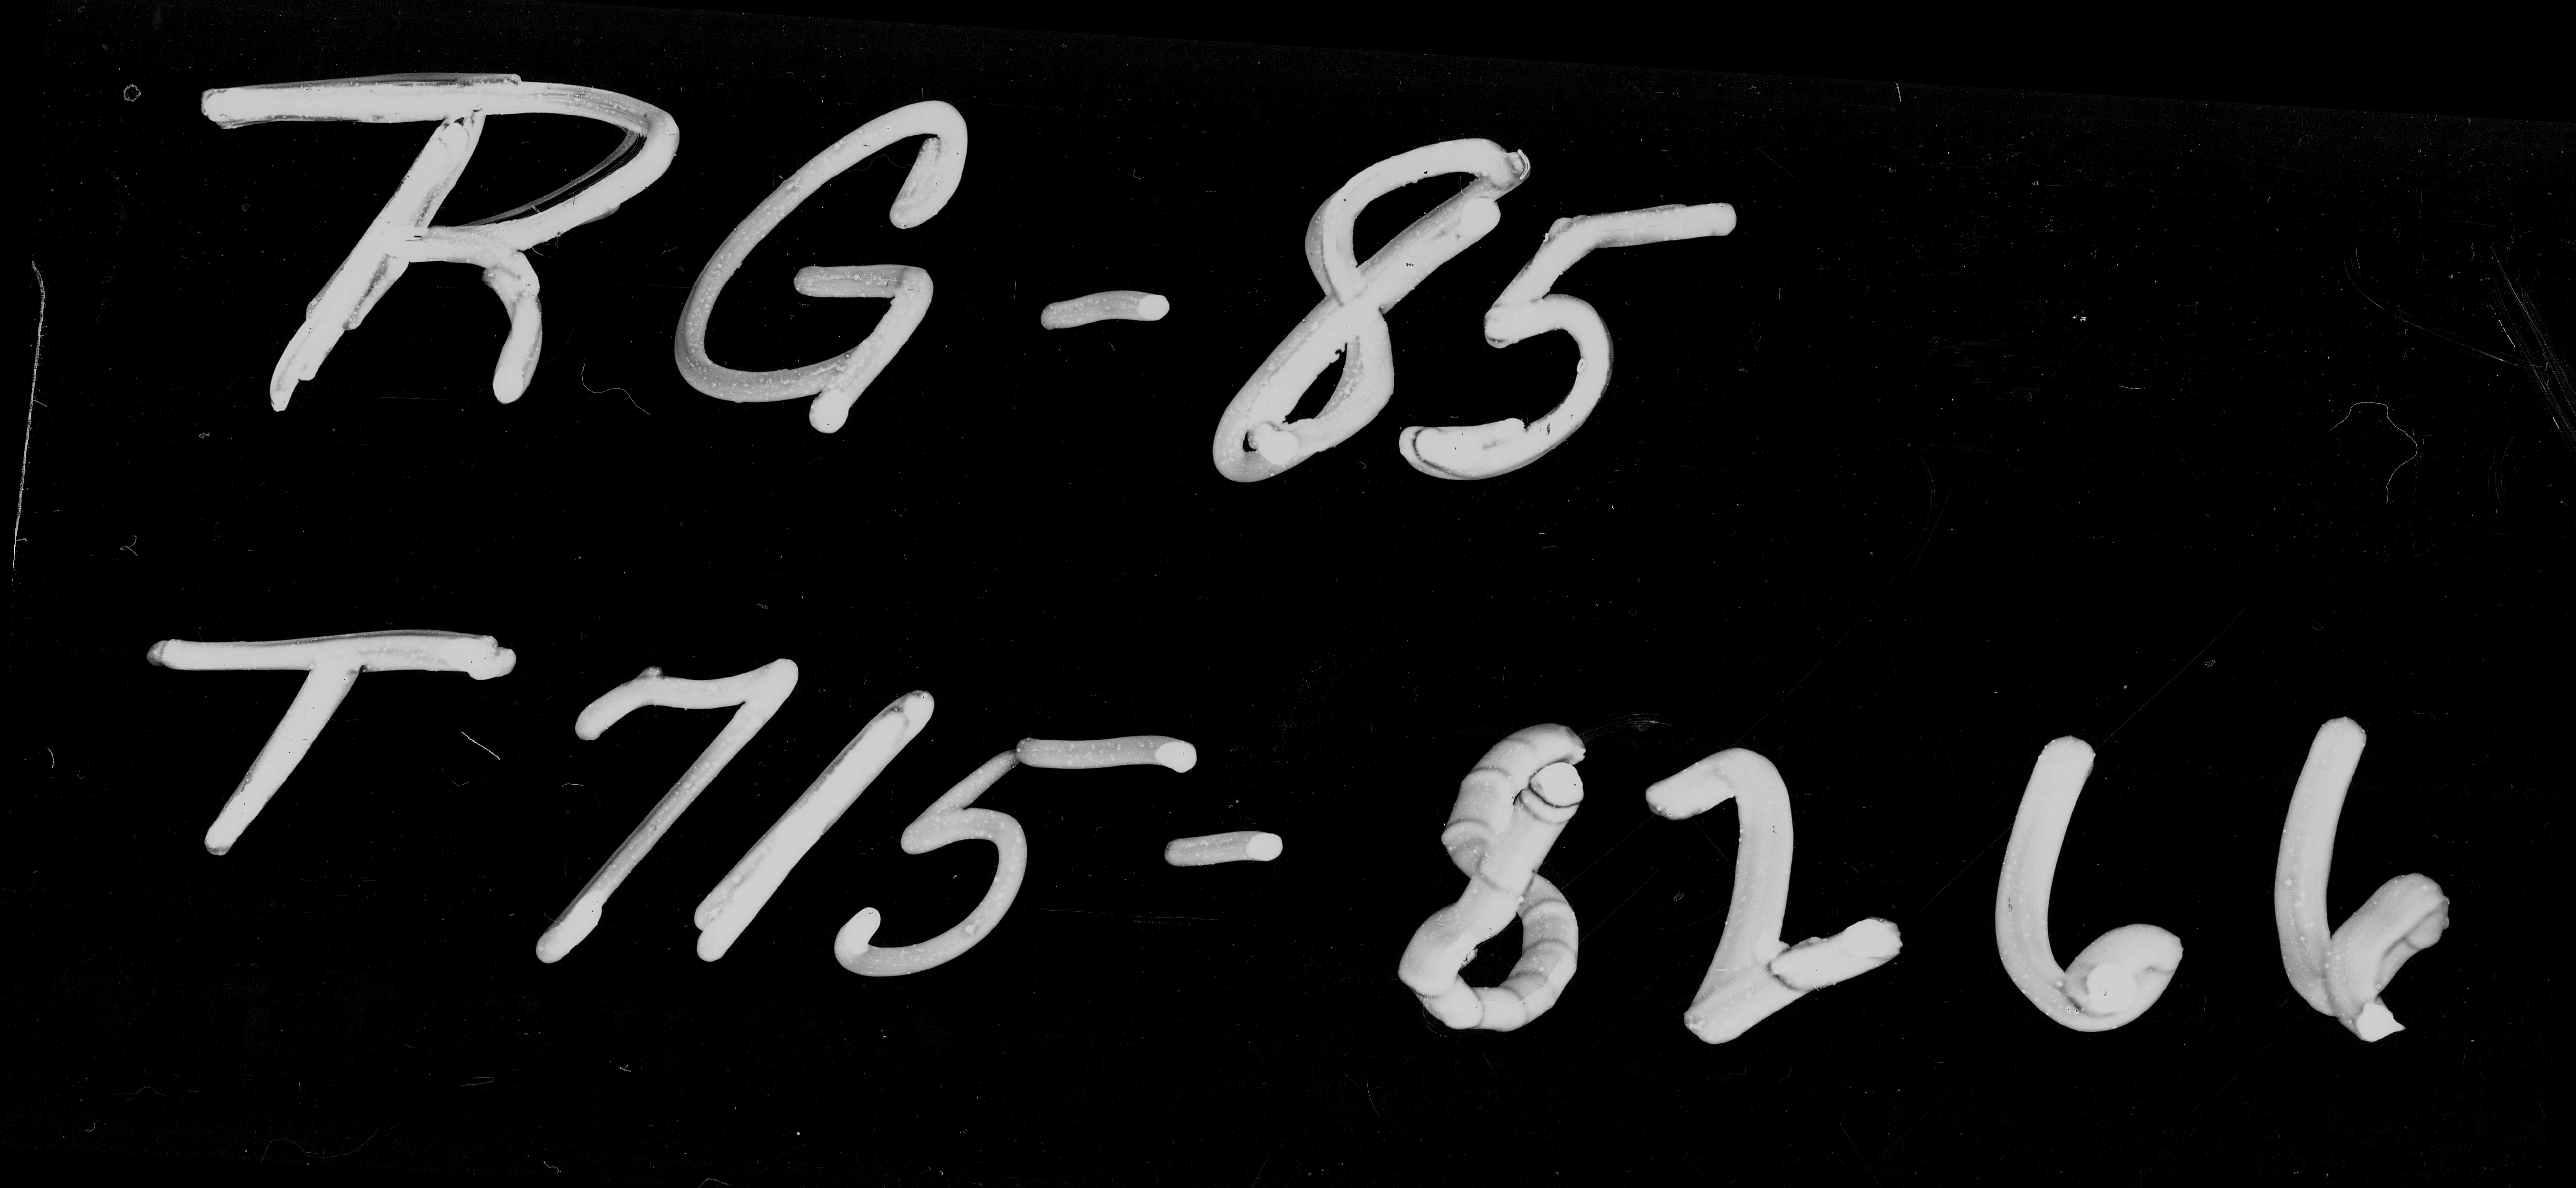 RG-85
T715-8266